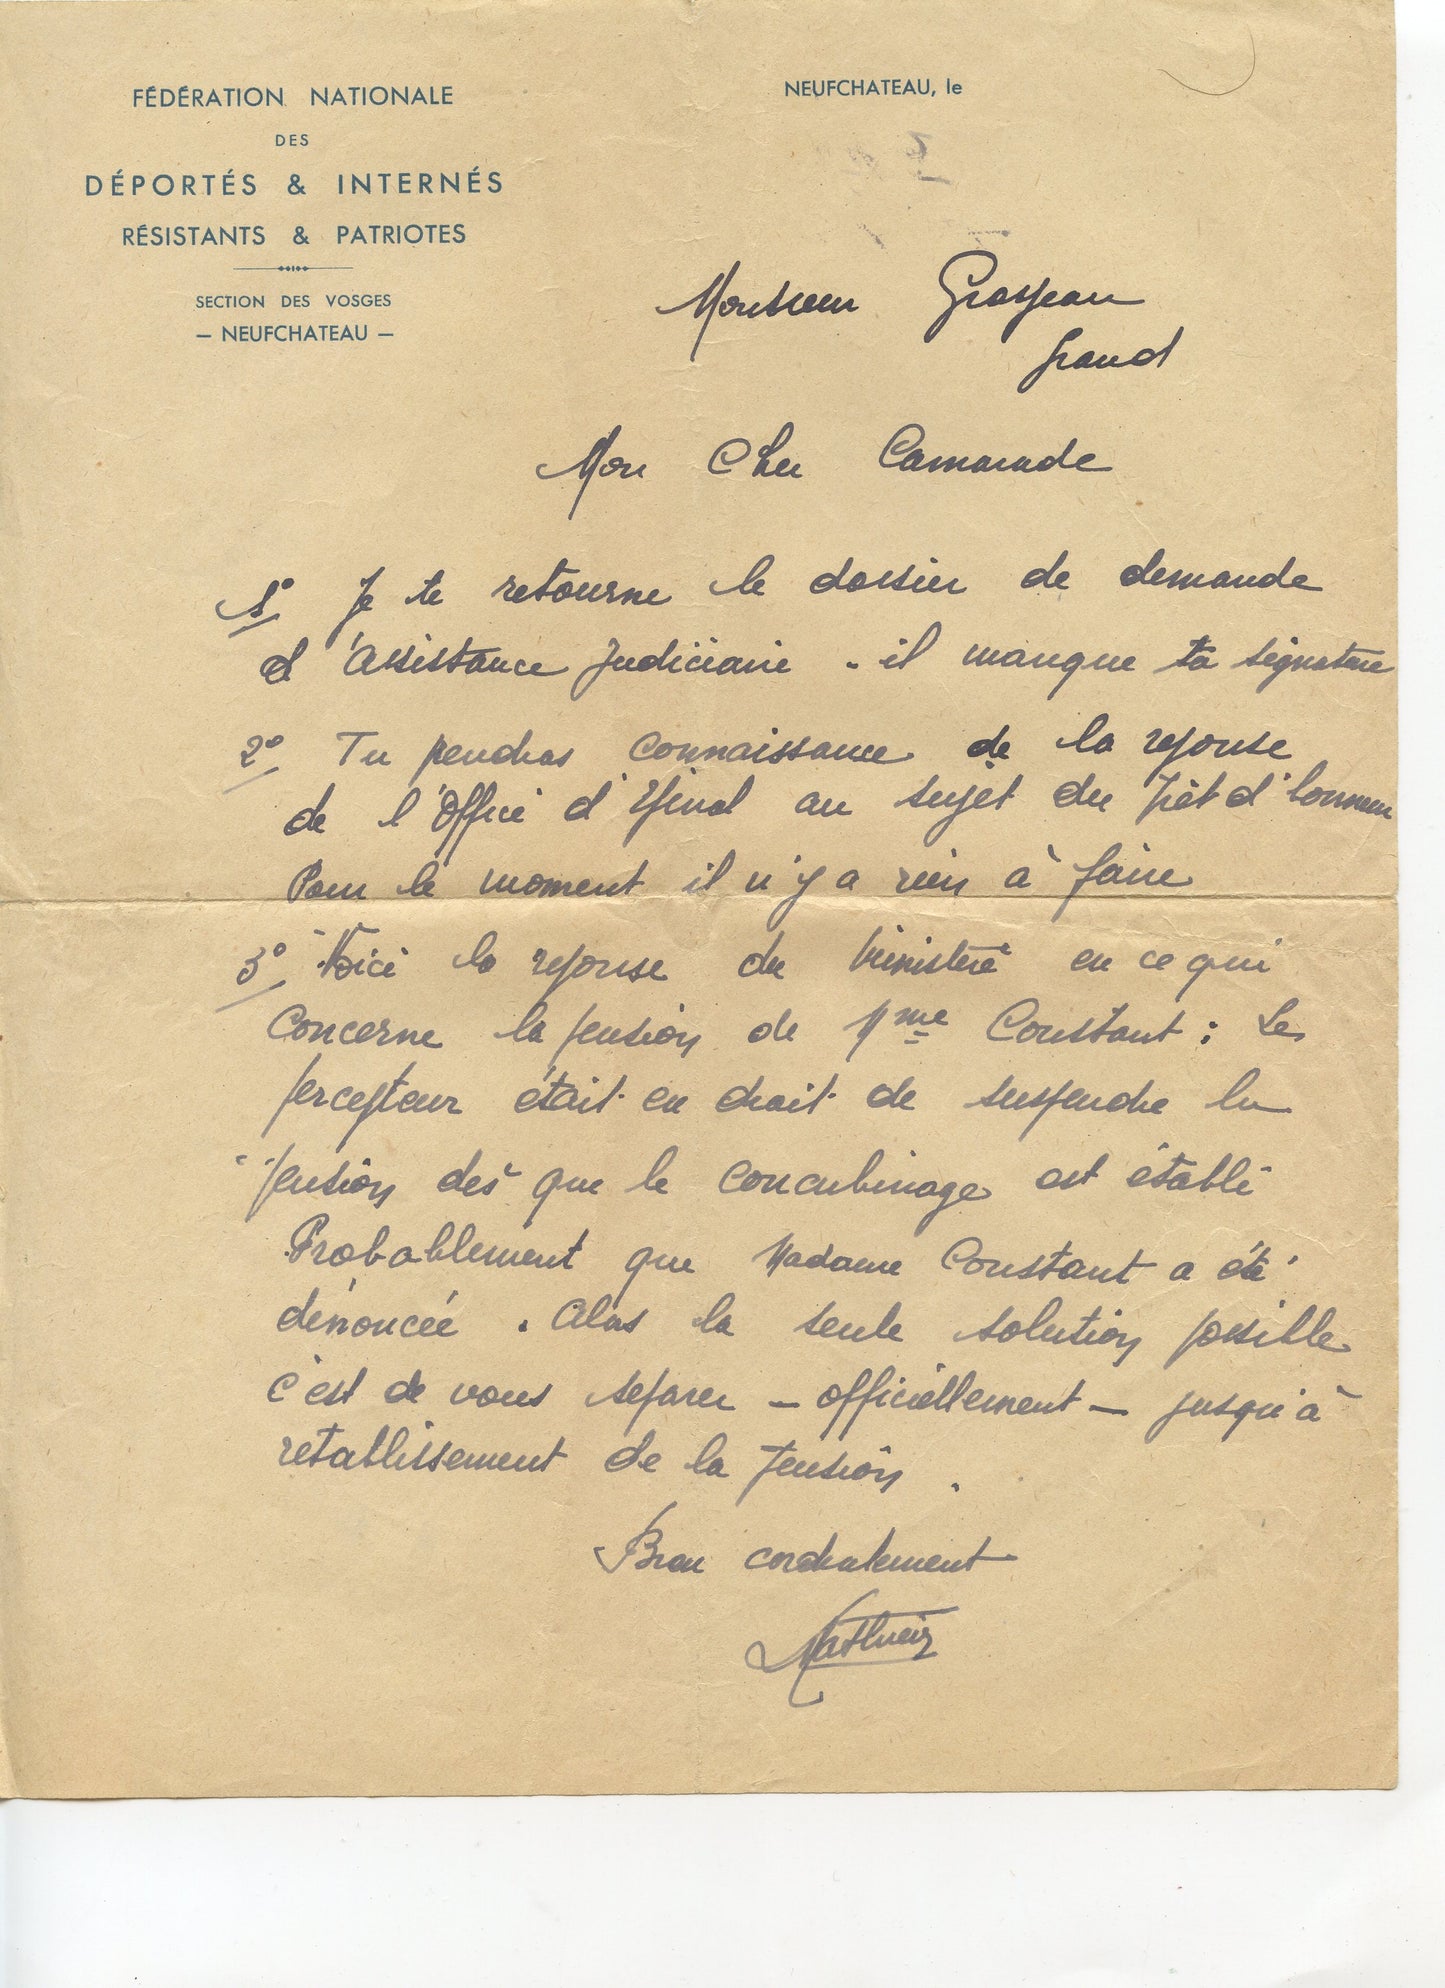 FÉDÉRATION NATIONALE
DES
DÉPORTÉS & INTERNÉS
RÉSISTANTS & PATRIOTES
SECTION DES VOSGES
— NEUFCHATEAU —
NEUFCHATEAU, le
Monsieur Grosjean
Grand
Mon Cher Camarade
1° Je te retourne le dossier de demande
d'Assistance Judiciaire . il manque ta signature
2° Tu pendras connaissance de la reponse
de l'Office d'Epinal au sujet du Prêt d'honneur
Pour le moment il n'y a rien à faire
3° Voici la reponse du Ministère en ce qui
Concerne la pension de Mme Constant : Le
percepteur était en droit de suspendre la
pension dès que le concubinage est établi
Probablement que Madame Constant a été
dénoncée . Alas la seule solution possible
c'est de vous separer — officiellement — jusqu'à
retablissement de la pension .
Bien cordialement